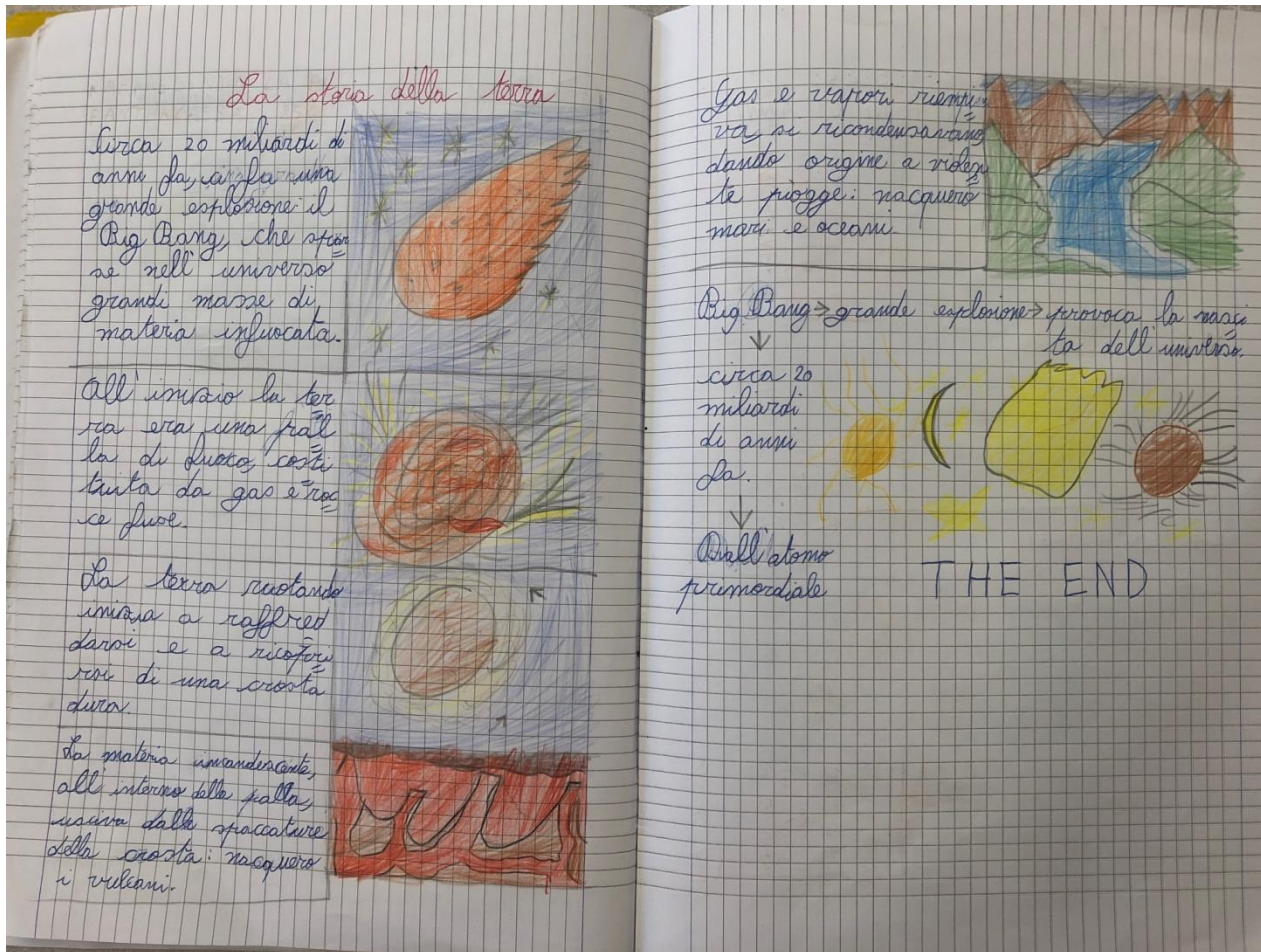 La storia della terra
Circa 20 miliardi di
anni fa, ci fu una
grande esplosione: il
Big Bang, che spar
se nell'universo
grandi masse di
materia infuocata.
All'inizio la ter
ra era una pal
la di fuoco, costi
tuita da gas e roc
ce fuse.
La terra ruotando
inizia a raffred
darsi e a ricopri
rsi di una crosta
dura.
La materia incandescente,
all'interno della palla,
usciva dalle spaccature
della crosta: nacquero
i vulcani.
Gas e vapori riempi
va, si ricondensavano
dando origine a violen
te piogge: nacquero
mari e oceani.
Big Bang → grande esplosione → provoca la nasci
ta dell'universo.
circa 20
miliardi
di anni
fa.
Dall'atomo
primordiale
THE END